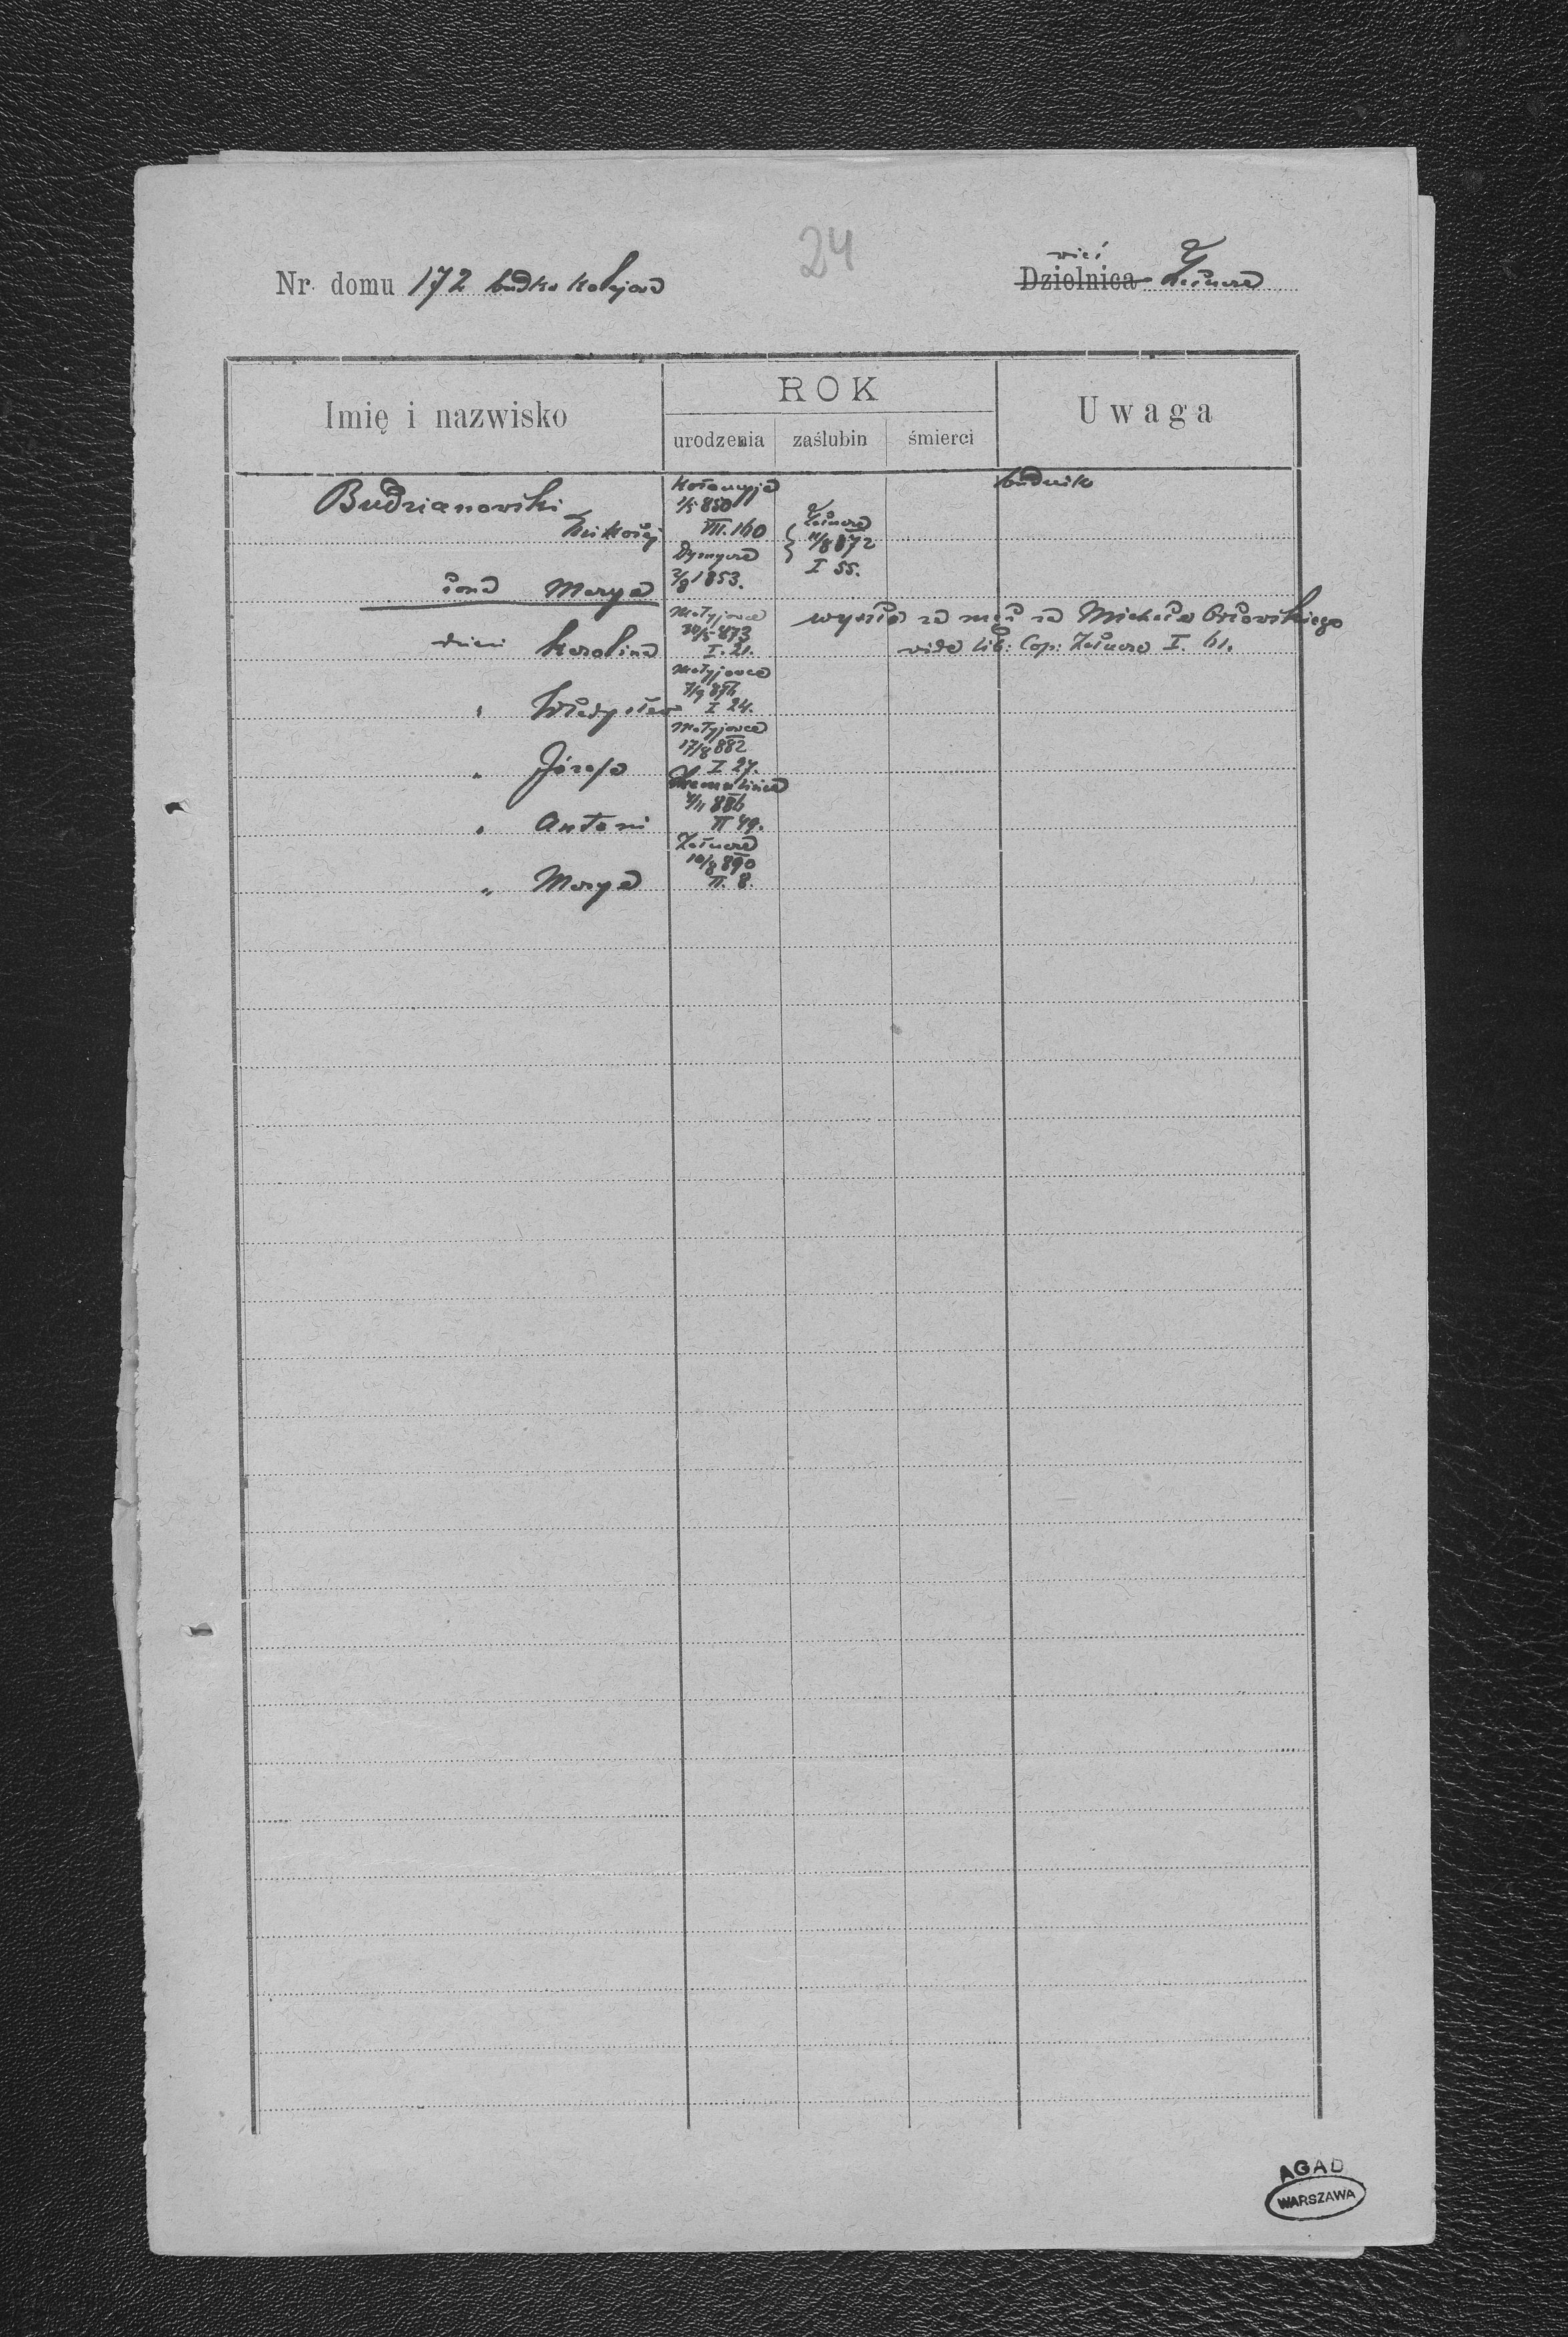 24
Nr. domu 172 budka kolejowa
wieś
Dzielnica Załucze
Imię i nazwisko
ROK
urodzenia zaślubin śmierci
Uwaga
Budzianowski
Mikołaj
Kołomyja
1/5 850
VII. 160
Załucze
11/8 872
I 55.
budnik
żona Marya
2/8 1853.
dzieci Karolina
Matyjowce
30/5 873
I. 21.
wyszła za mąż za Michała Orłowskiego
vide Lib: Cop: Załucze I. 61.
" Władysław
Matyjowce
7/9 876
I 24.
" Józefa
Matyjowce
17/8 882
I 27.
" Antoni
4/11 886
II 49.
" Marya
Załucze
10/8 890
II. 8.
AGAD
WARSZAWA